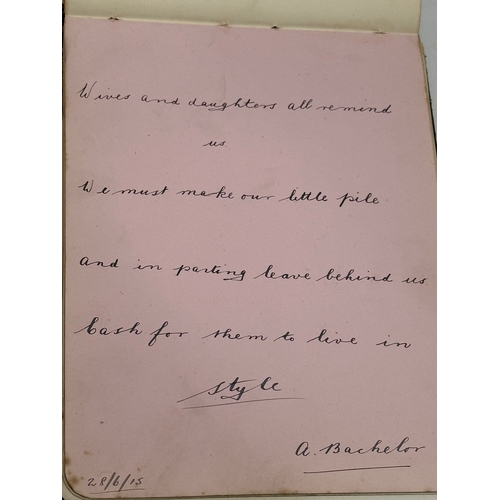 Wives and daughters all remind
us
We must make our little pile
And in parting leave behind us
Cash for them to live in
style
A. Bachelor
28/6/15